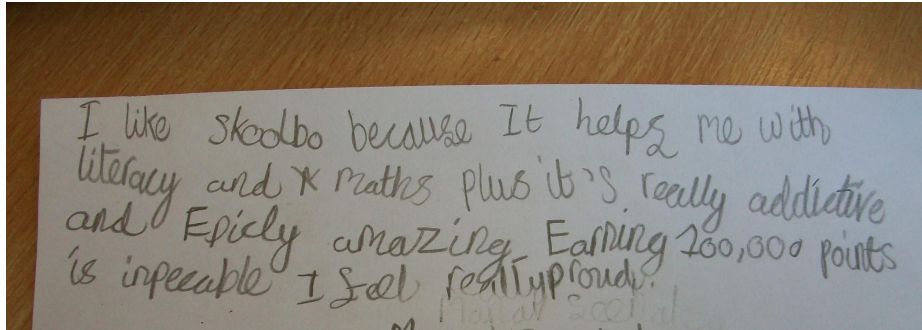 I like skoolbo because It helps me with
literacy and maths plus it's really addictive
and Epicly amazing Earning 200,000 points
is inpecable I feel really proud.